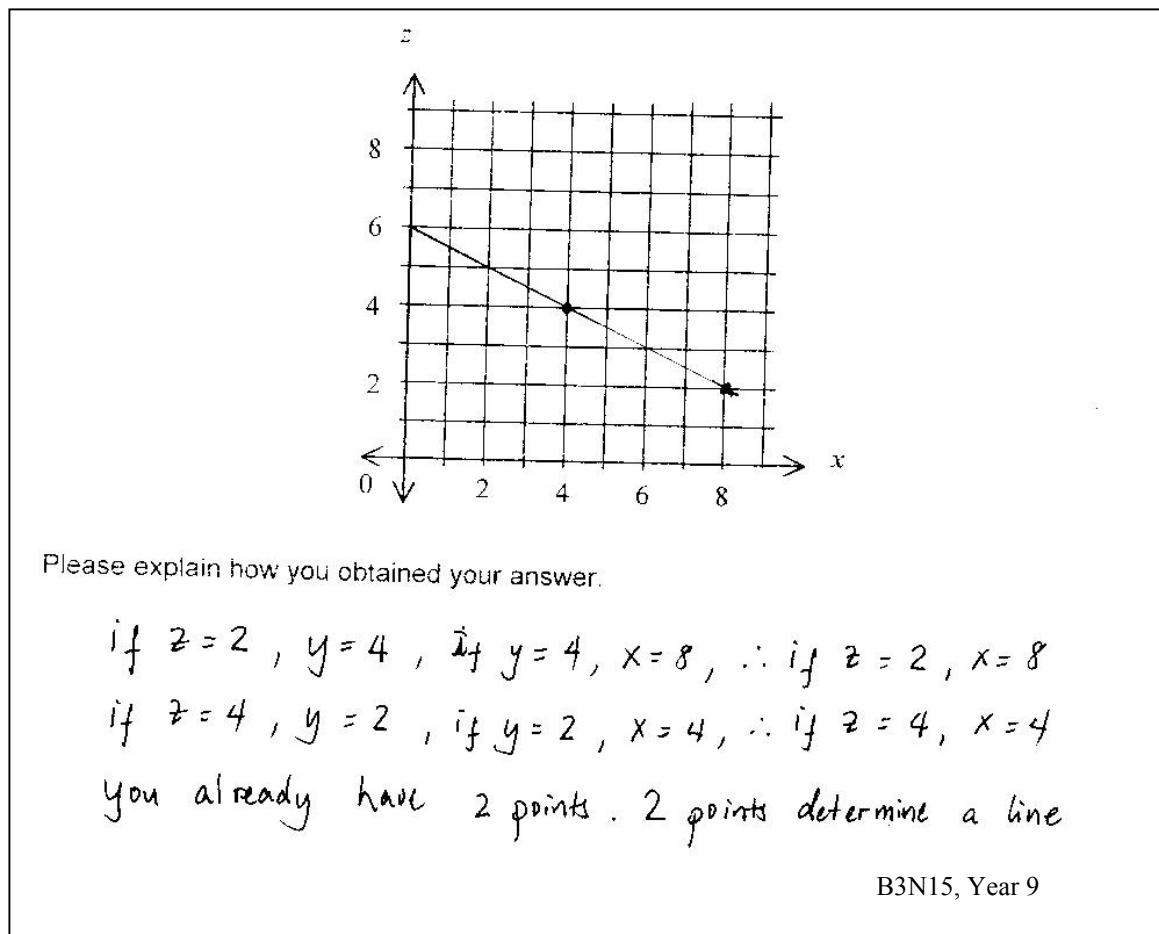 z
8
6
4
2
0 2 4 6 8 x
Please explain how you obtained your answer.
if z = 2 , y = 4 , if y = 4, x = 8 , ∴ if z = 2 , x = 8
if z = 4 , y = 2 , if y = 2 , x = 4 , ∴ if z = 4 , x = 4
you already have 2 points . 2 points determine a line
B3N15, Year 9